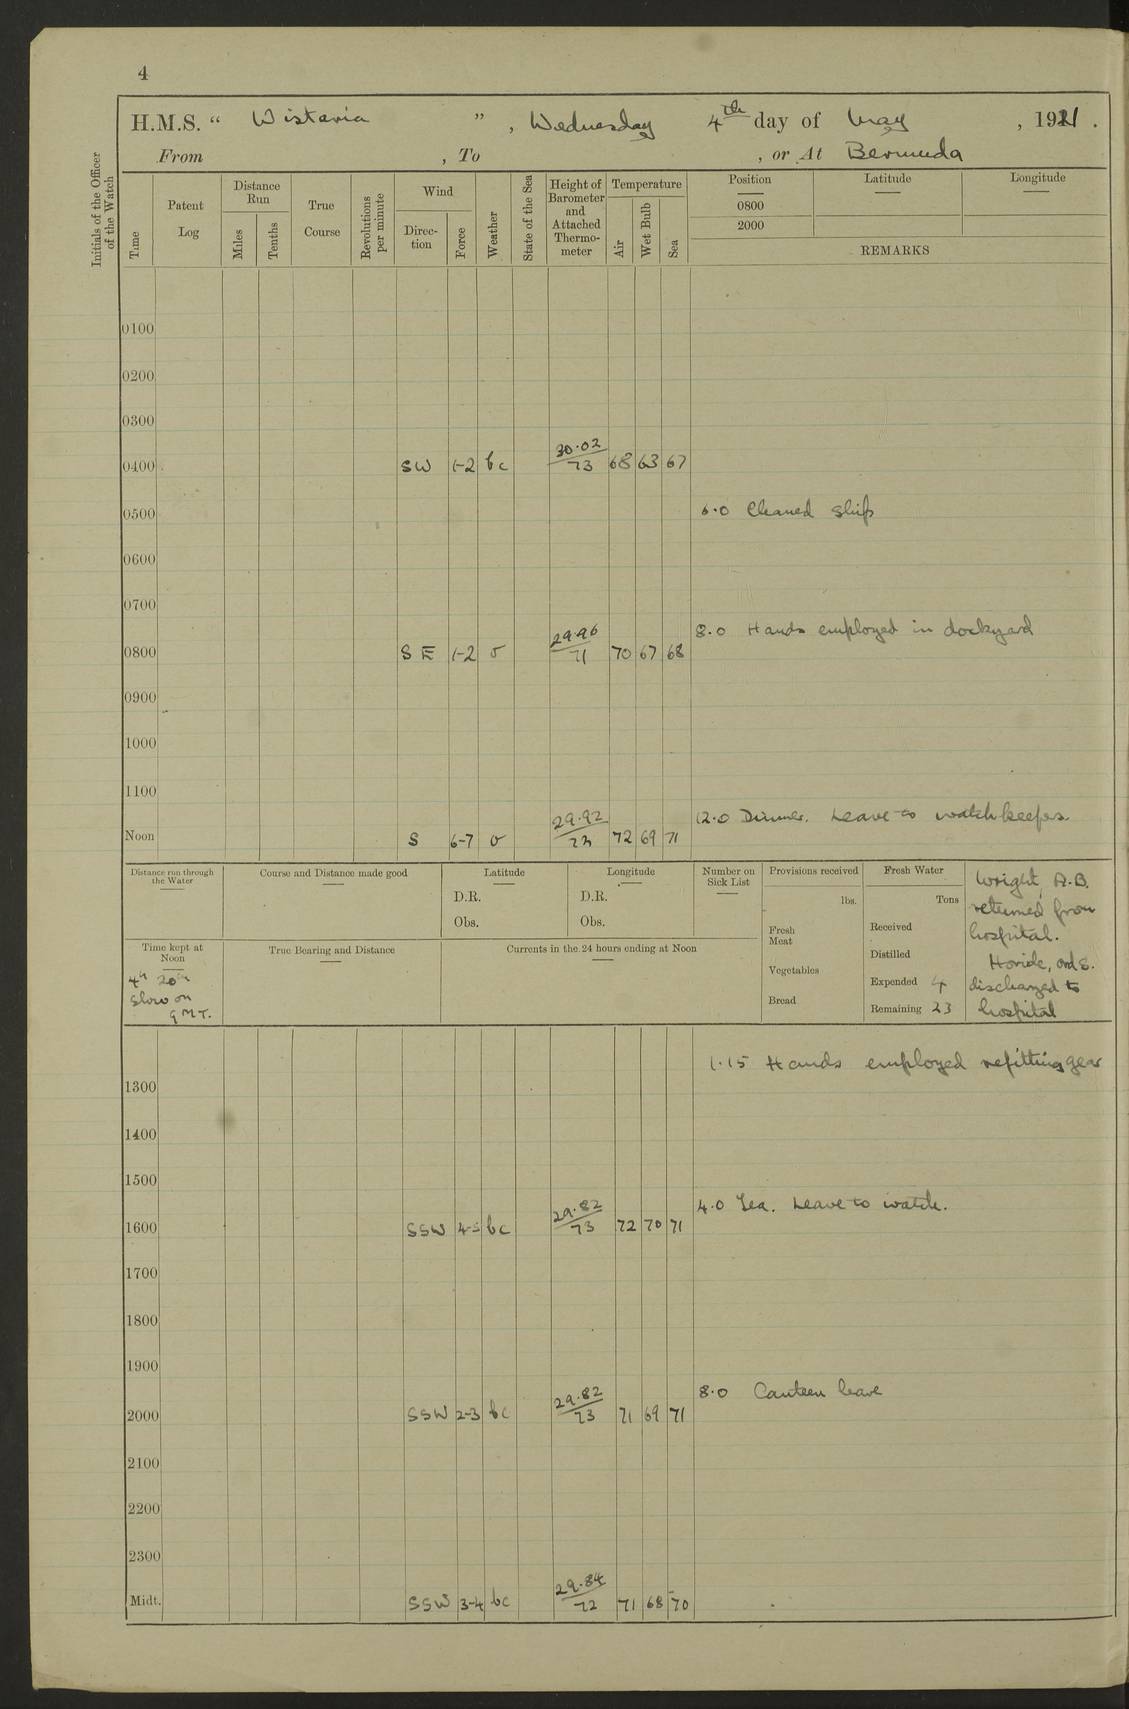 4
H.M.S. “ Wistaria ” , Wednesday 4th day of May , 1921 .
From , To , or At Bermuda
Initials of the Officer of the Watch
Time
Patent Log
Distance Run
Miles
Tenths
True Course
Revolutions per minute
Wind
Direction
Force
Weather
State of the Sea
Height of Barometer and Attached Thermometer
Temperature
Air
Wet Bulb
Sea
Position Latitude Longitude
0800
2000
REMARKS
0100
0200
0300
0400 SW 1-2 bc 30.02/73 68 63 67
0500 6.0 Cleaned ship
0600
0700
8.0 Hands employed in dockyard
0800 SE 1-2 o 29.96/71 70 67 68
0900
1000
1100
12.0 Dinner. Leave to watchkeepers.
Noon S 6-7 o 29.92/73 72 69 71
Distance run through the Water
Course and Distance made good
Latitude
D.R.
Obs.
Longitude
D.R.
Obs.
Number on Sick List
Provisions received
lbs.
Fresh Meat
Vegetables
Bread
Fresh Water
Tons
Received
Distilled
Expended 4
Remaining 23
Wright, A.B.
returned from
hospital.
ord S.
discharged to
hospital
Time kept at Noon
4h 20m
slow on
GMT.
True Bearing and Distance
Currents in the 24 hours ending at Noon
1.15 Hands employed refitting gear
1300
1400
1500
4.0 Tea. Leave to watch.
1600 SSW 4-5 bc 29.82/73 72 70 71
1700
1800
1900
8.0 Canteen leave
2000 SSW 2-3 bc 29.82/73 71 69 71
2100
2200
2300
Midt. SSW 3-4 bc 29.84/72 71 68 70